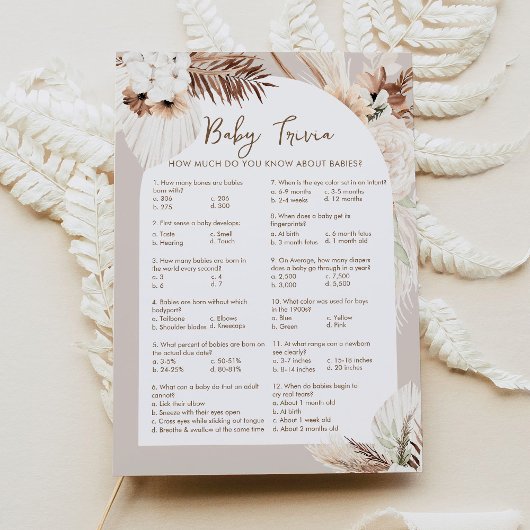 Baby Trivia
HOW MUCH DO YOU KNOW ABOUT BABIES?
1. How many bones are babies
born with?
a. 306 c. 206
b. 275 d. 300
2. First sense a baby develops:
a. Taste c. Smell
b. Hearing d. Touch
3. How many babies are born in
the world every second?
a. 3 c. 4
b. 6 d. 7
4. Babies are born without which
bodypart?
a. Tailbone c. Elbows
b. Shoulder blades d. Kneecaps
5. What percent of babies are born on
the actual due date?
a. 3-5% c. 50-51%
b. 24-25% d. 80-81%
6. What can a baby do that an adult
cannot?
a. Lick their elbow
b. Sneeze with their eyes open
c. Cross eyes while sticking out tongue
d. Breathe & swallow at the same time
7. When is the eye color set in an infant?
a. 6-9 months c. 3-5 months
b. 2-4 weeks d. 12 months
8. When does a baby get its
fingerprints?
a. At birth c. 6 month fetus
b. 3 month fetus d. 1 month old
9. On Average, how many diapers
does a baby go through in a year?
a. 2,500 c. 7,500
b. 3,000 d. 5,500
10. What color was used for boys
in the 1900s?
a. Blue c. Yellow
b. Green d. Pink
11. At what range can a newborn
see clearly?
a. 3-7 inches c. 15-18 inches
b. 8-14 inches d. 20 inches
12. When do babies begin to
cry real tears?
a. About 1 month old
b. At birth
c. About 1 week old
d. About 2 months old